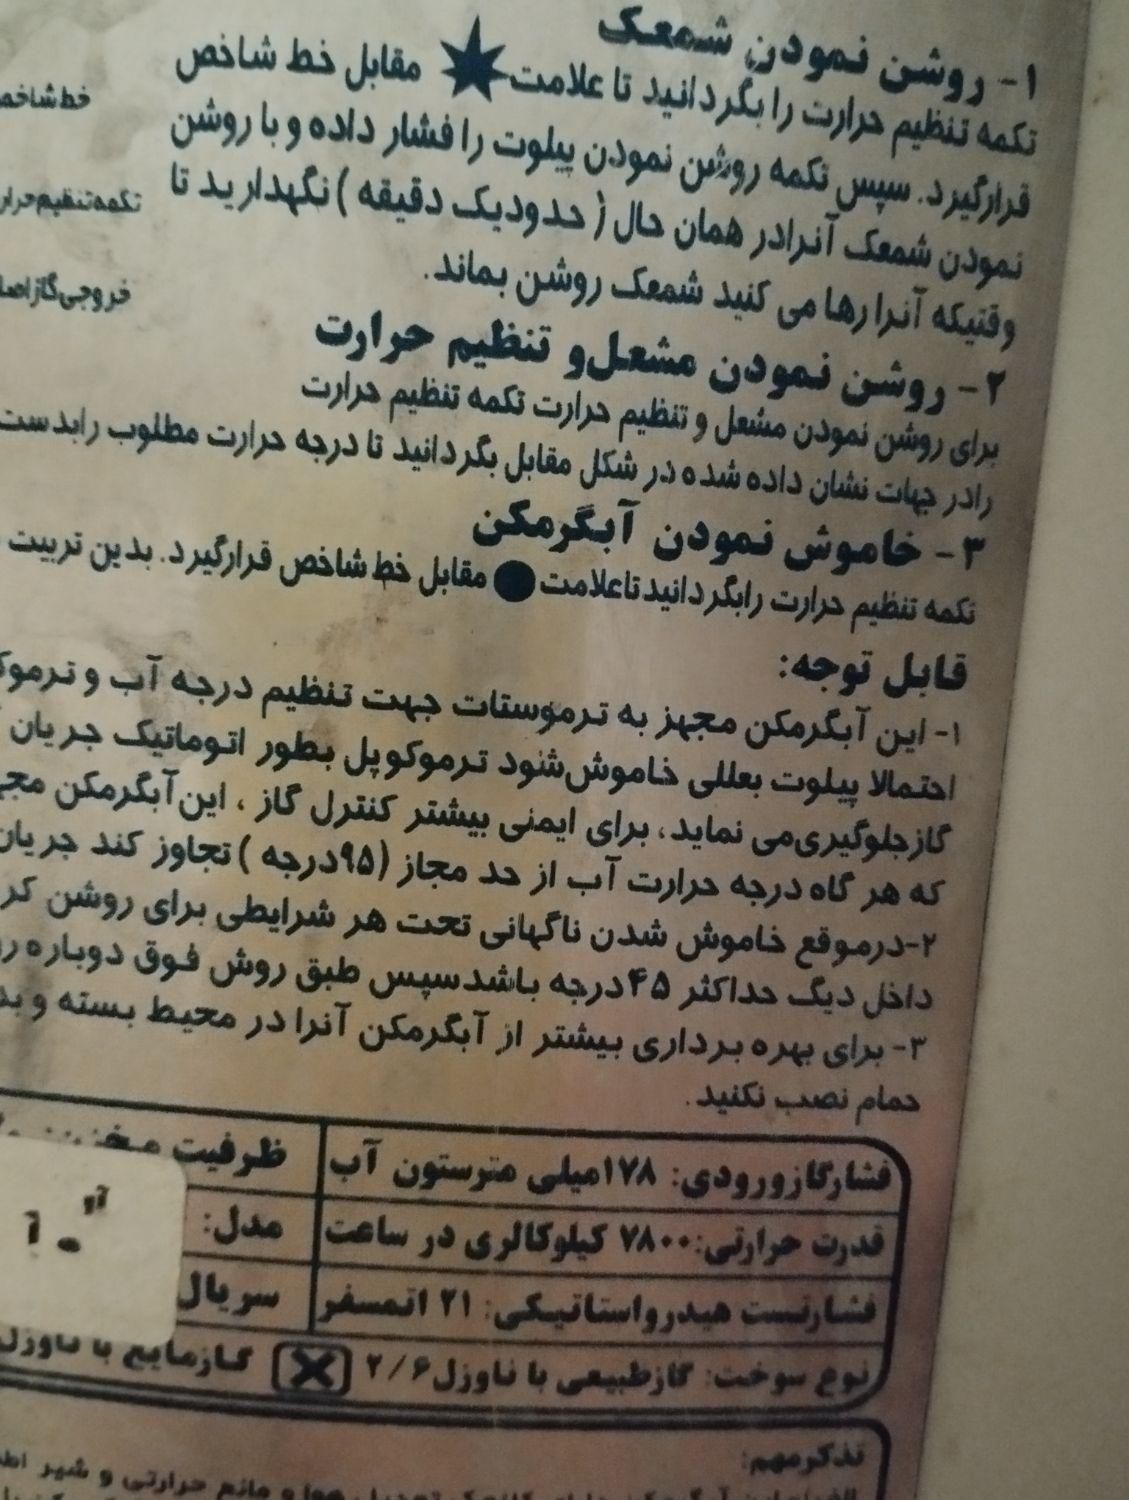 ۱- روشن نمودن شمعک
تکمه تنظیم حرارت را بگردانید تا علامت مقابل خط شاخص
قرارگیرد. سپس تکمه روشن نمودن پیلوت را فشار داده و با روشن
نمودن شمعک آنرادر همان حال (حدودیک دقیقه) نگهدارید تا
وقتیکه آنرا رها می کنید شمعک روشن بماند.
۲- روشن نمودن مشعل و تنظیم حرارت
برای روشن نمودن مشعل و تنظیم حرارت تکمه تنظیم حرارت
رادر جهات نشان داده شده در شکل مقابل بگردانید تا درجه حرارت مطلوب رابدست
۳- خاموش نمودن آبگرمکن
تکمه تنظیم حرارت رابگردانیدتاعلامت مقابل خط شاخص قرارگیرد. بدین تربیت
خط شاخص
تکمه تنظیم حرار
خروجی گاز اصا
قابل توجه:
۱- این آبگرمکن مجهز به ترموستات جهت تنظیم درجه آب و ترموک
احتمالا پیلوت بعللی خاموش شود ترموکوپل بطور اتوماتیک جریان
گازجلوگیری می نماید، برای ایمنی بیشتر کنترل گاز، این آبگرمکن مجه
که هر گاه درجه حرارت آب از حد مجاز (۹۵درجه) تجاوز کند جریان
۲-درموقع خاموش شدن ناگهانی تحت هر شرایطی برای روشن کر
داخل دیگ حداکثر ۴۵درجه باشدسپس طبق روش فوق دوباره رو
۳- برای بهره برداری بیشتر از آبگرمکن آنرا در محیط بسته و بد
حمام نصب نکنید.
فشارگازورودی: ۱۷۸میلی مترستون آب ظرفیت مخزن
قدرت حرارتی: ۷۸۰۰ کیلوکالری در ساعت مدل:
فشارتست هیدرواستاتیکی: ۲۱ اتمسفر سریال
نوع سوخت: گازطبیعی با ناوزل ۲/۶ گازمایع با ناوزل
تذکرمهم:
حرارتی و شیر اط